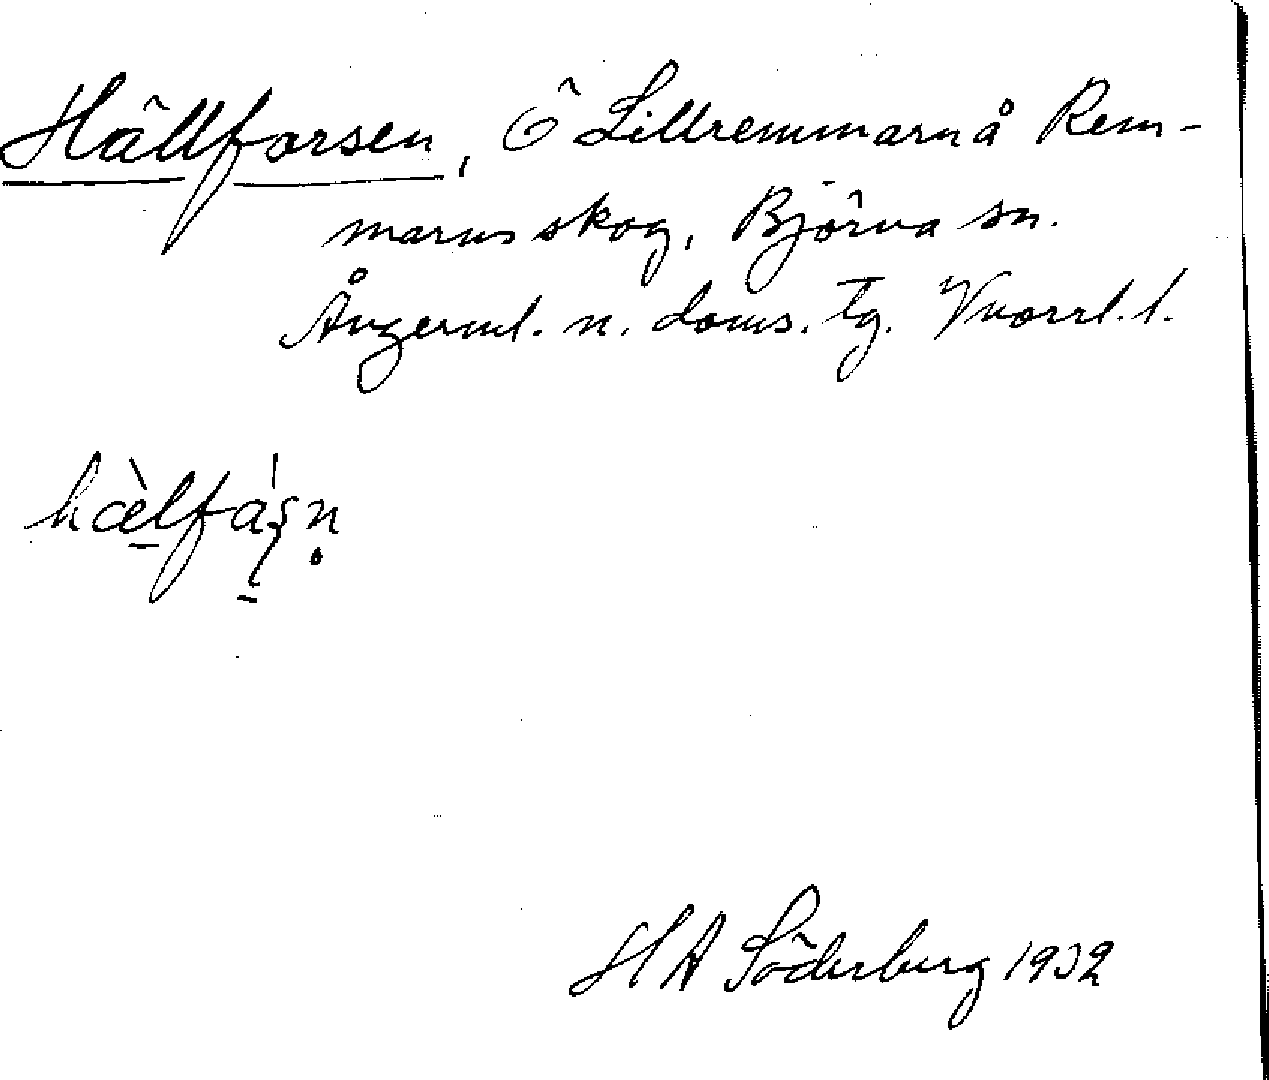 Hällforsen, Ö Lillremmarnå Rem-
marns skog, Björna sn.
Ångerml. n. doms. tg. Vnorrl. l.
hæ̀lfáʂn̥
H A Söderberg 1932